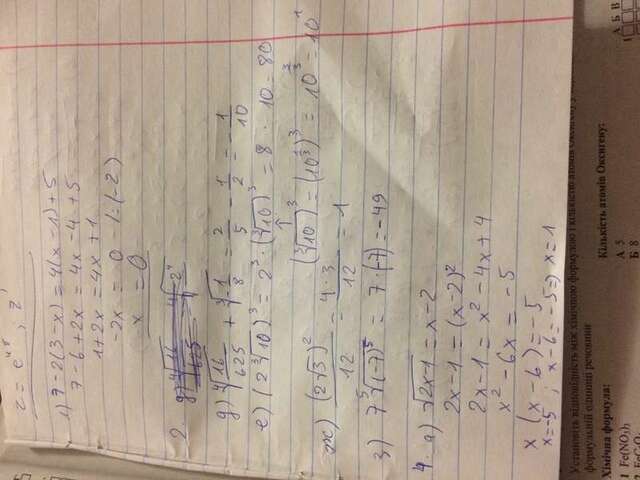 z = e
1) 7-2(3-x) = 4(x-1)+5
7-6+2x = 4x-4+5
1+2x = 4x+1
-2x = 0 |:(-2)
x = 0
2.
g) ⁴√(16/625) + ³√(-1/8) = 2/5 - 1/2 = -1/10
е) (2 ³√10)³ = 2³ · (³√10)³ = 8 · 10 = 80
↑
(³√10)³ = (10^(1/3))³ = 10^(3/3) = 10¹
ж) (2√3)²/12 = 4·3/12 = 1
з) 7 ⁵√(-7)⁵ = 7·(-7) = -49
4. а) √(2x-1) = x-2
2x-1 = (x-2)²
2x-1 = x² - 4x + 4
x² - 6x = -5
x (x-6) = -5
x = -5 ; x-6 = -5 => x = 1
Установіть відповідність між хімічною формулою і кількістю атомів Оксигену у
формульній одиниці речовини
Хімічна формула:
Кількість атомів Оксигену:
1 Fe(NO₃)₃
А 5
Б 8
А Б В
1